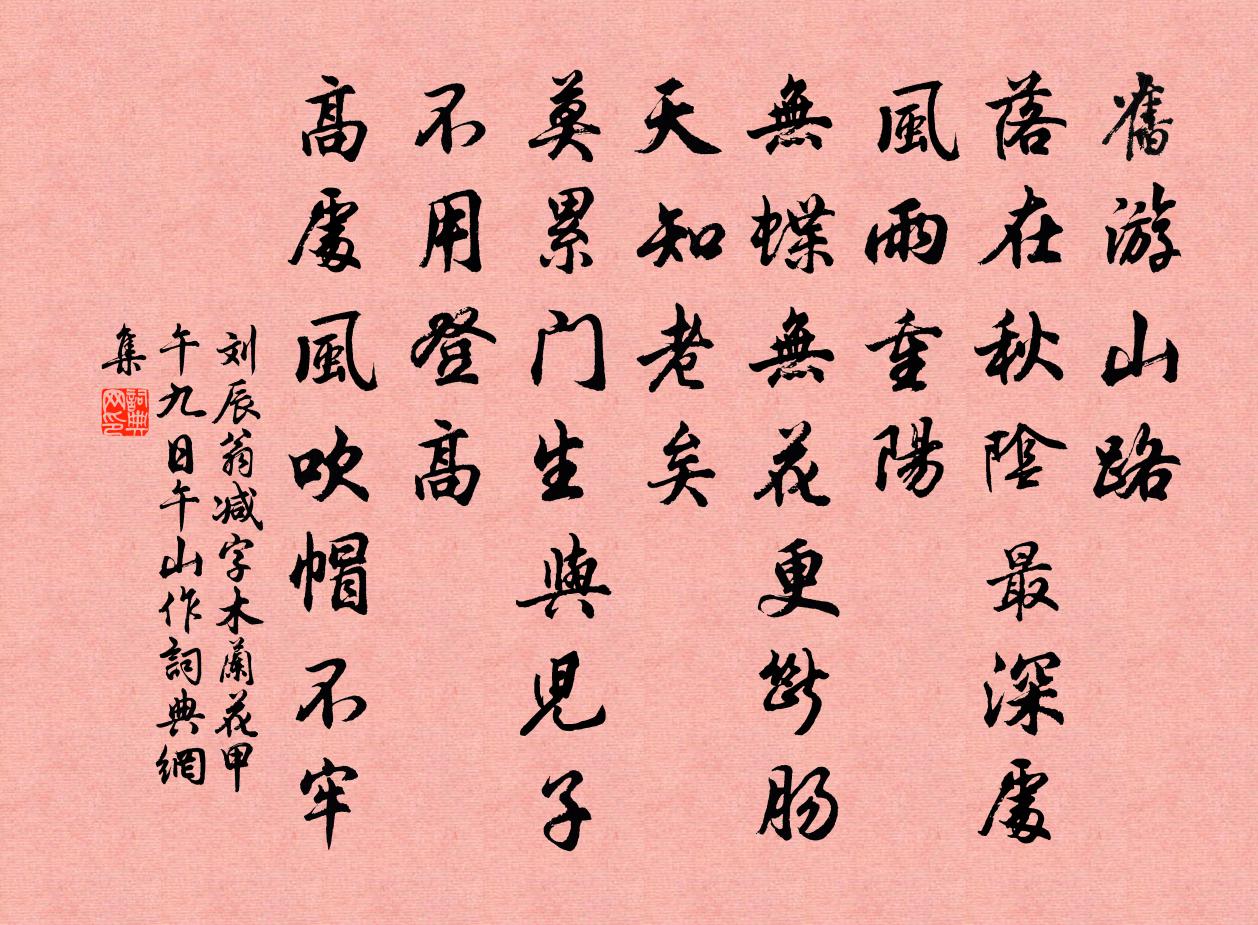 舊游山路
落在秋陰最深處
風雨重陽
無蝶無花更斷肠
天知老矣
莫累门生與兒子
不用登高
高處風吹帽不牢
刘辰翁减字木蘭花甲
午九日午山作詞典網
集
詞典网印